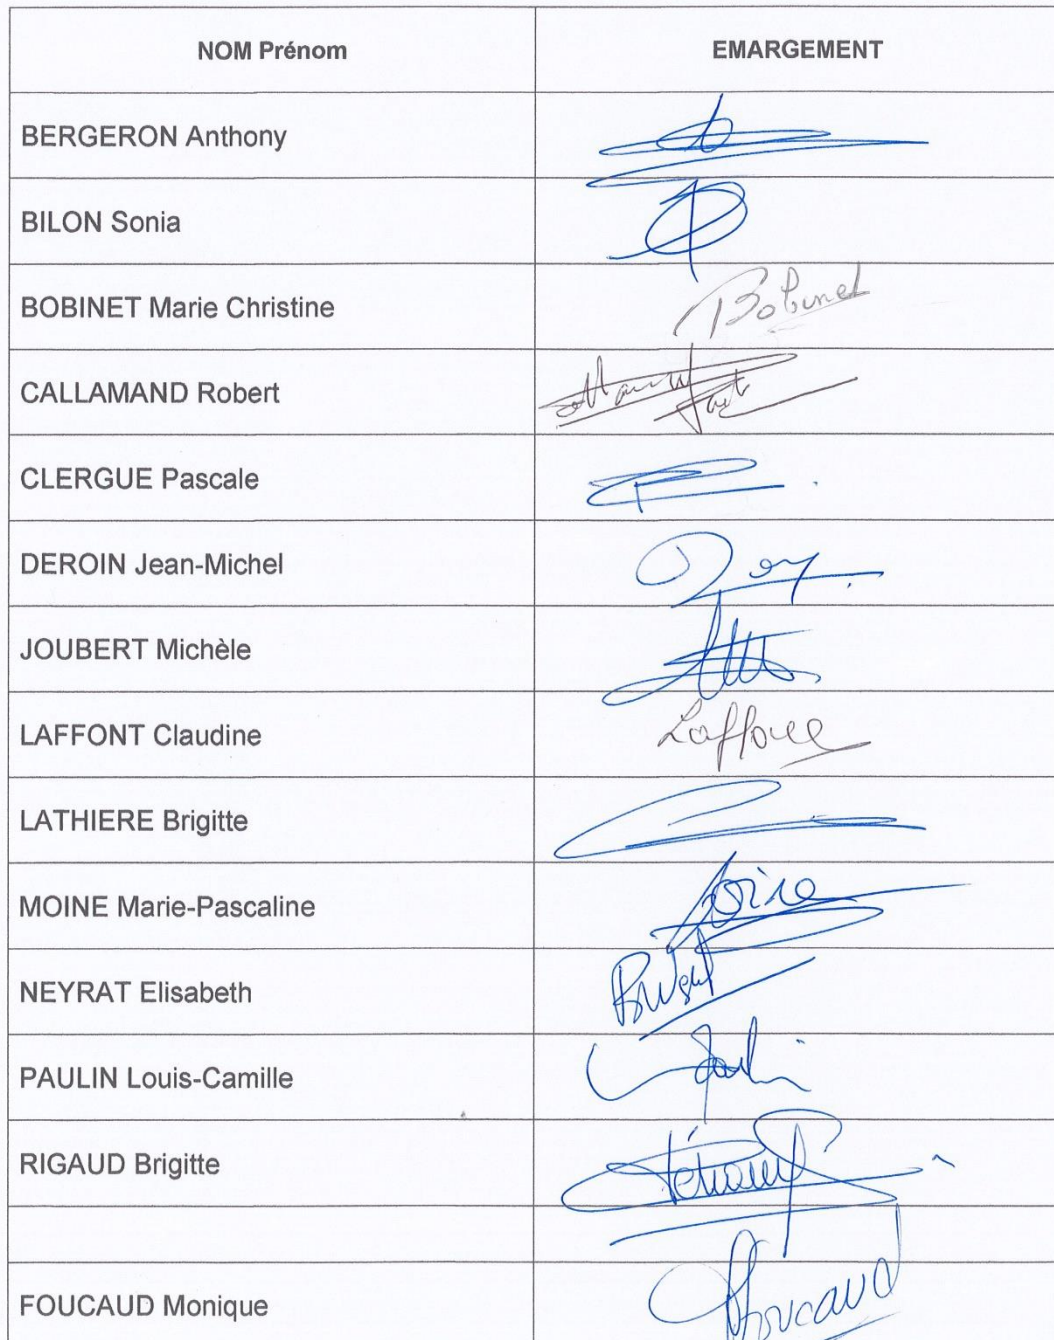 NOM Prénom EMARGEMENT
BERGERON Anthony
BILON Sonia
BOBINET Marie Christine Bobinet
CALLAMAND Robert
CLERGUE Pascale
DEROIN Jean-Michel
JOUBERT Michèle
LAFFONT Claudine
LATHIERE Brigitte
MOINE Marie-Pascaline
NEYRAT Elisabeth
PAULIN Louis-Camille
RIGAUD Brigitte
FOUCAUD Monique Foucaud